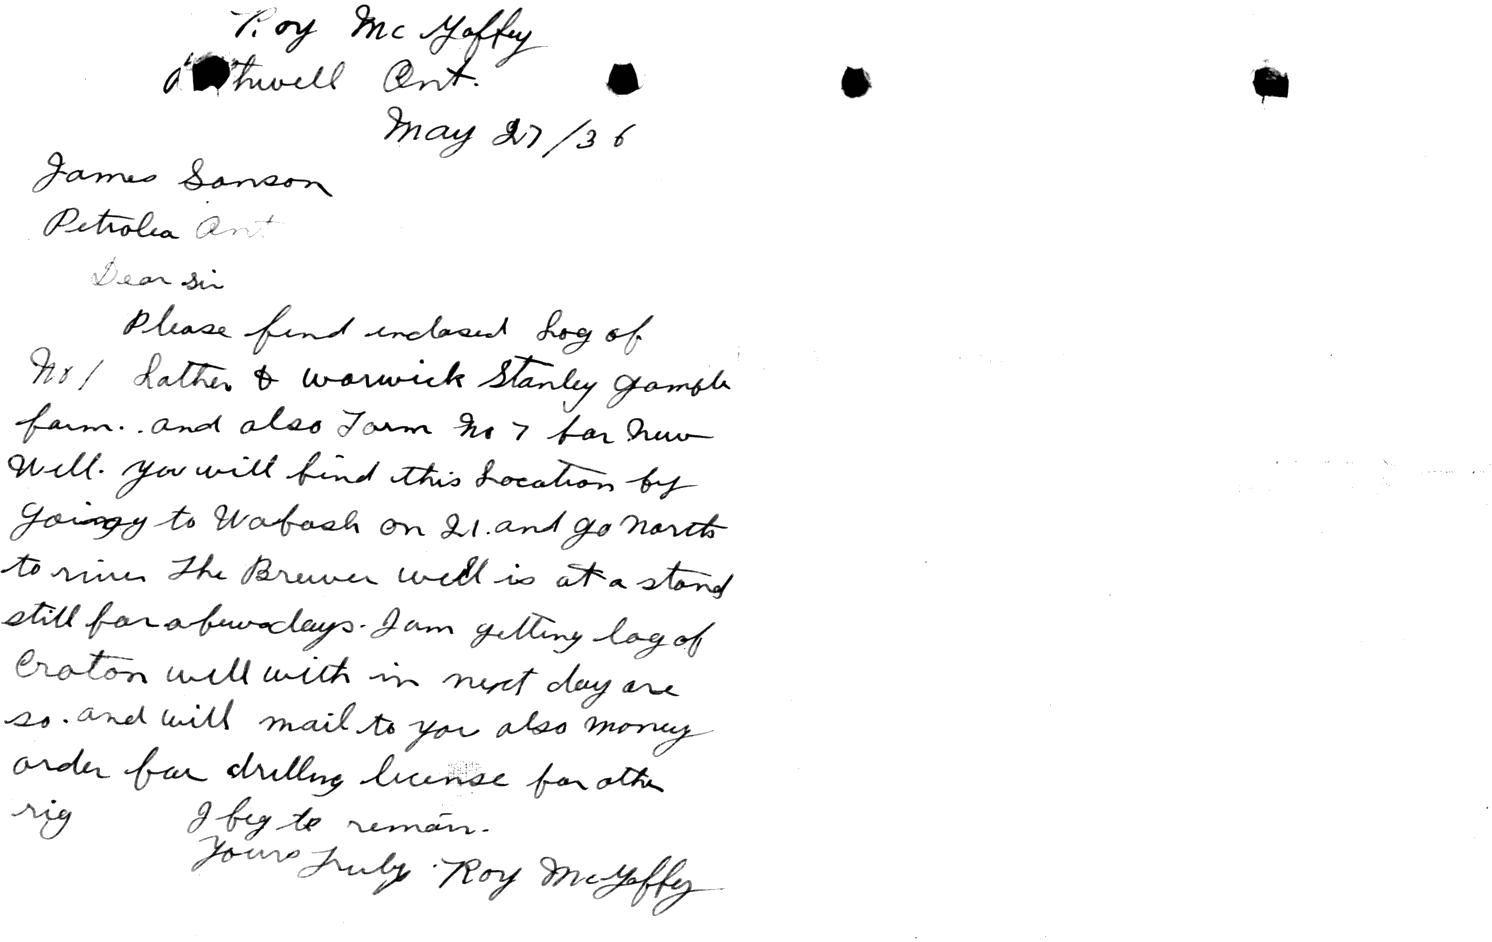 Roy McGaffey
thwell Ont.
May 27/36
James Sanson
Petrolea Ont
Dear sir
Please find enclosed Log of
No 1 Lather & Warwick Stanley Gamble
farm. . and also Form No 7 for New
Well. you will find this Location by
Going to Wabash on 21. and go North
to river The Brewer well is at a stand
still for a few days. I am getting log of
Croton well with in next day are
so. and will mail to you also money
order for drilling license for other
rig I beg to remain.
Yours Truly. Roy McGaffey